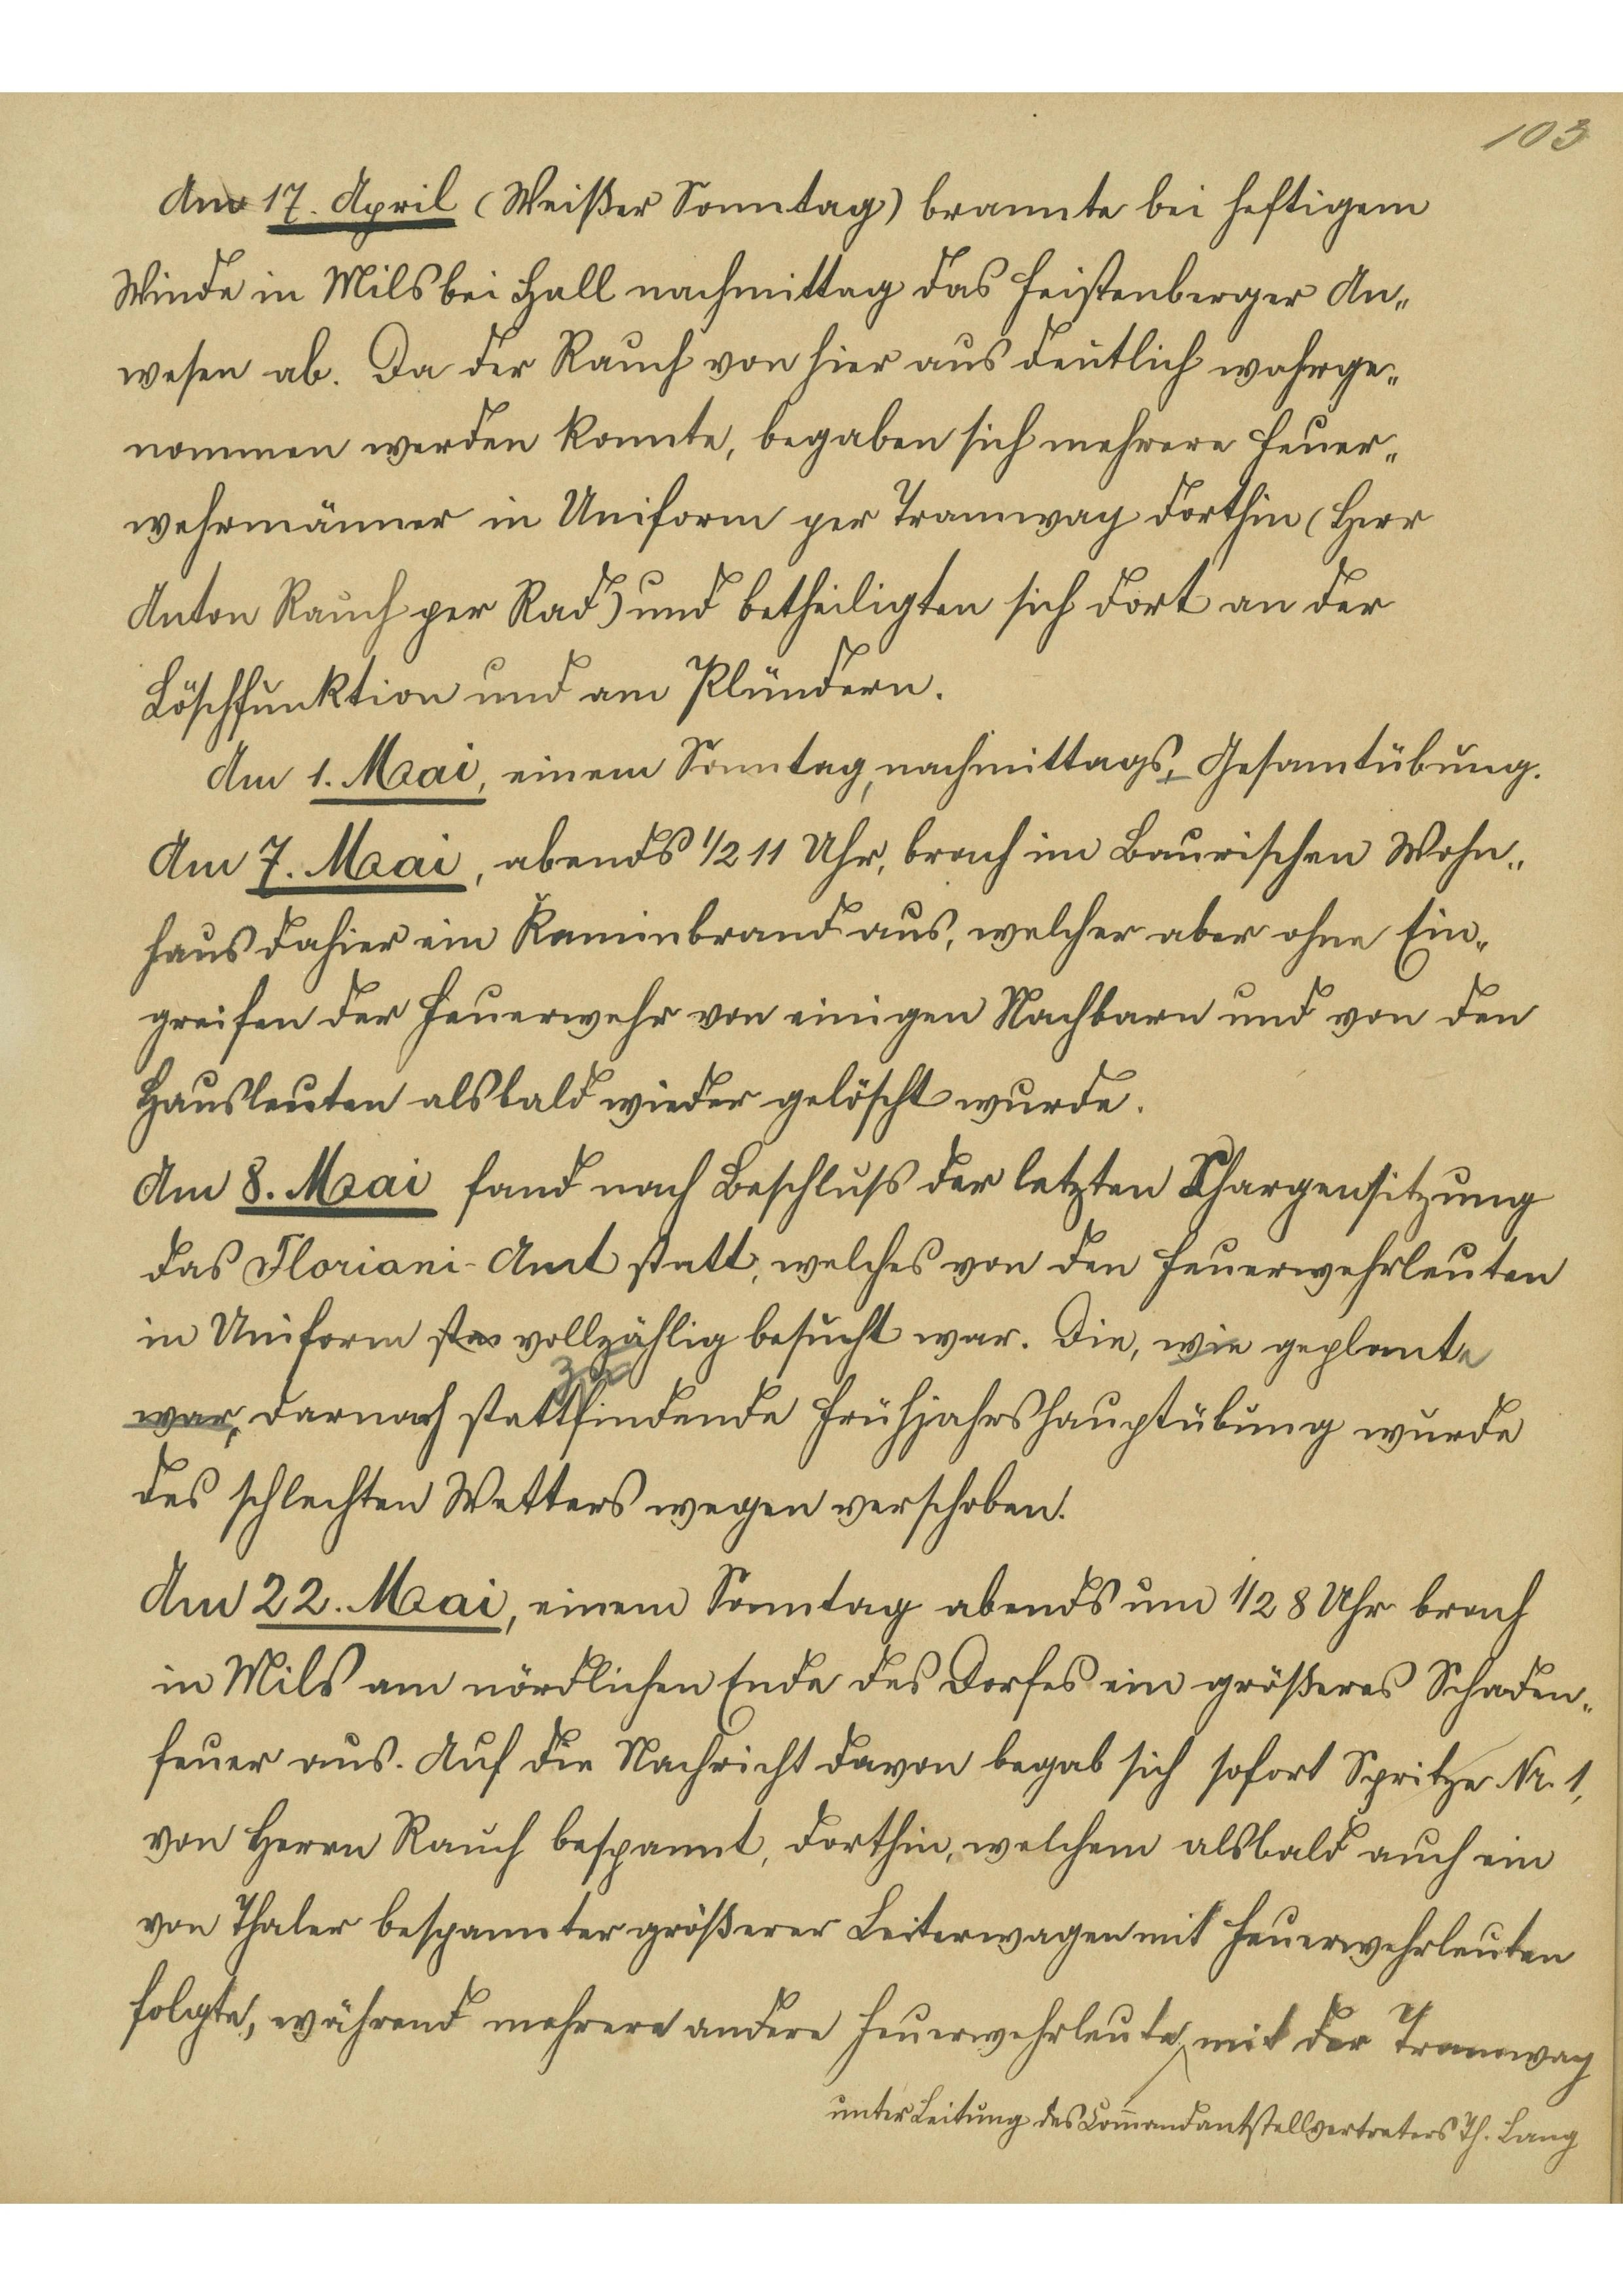 103
Am 17. April (Weißer Sonntag) brannte bei heftigem
Winde in Mils bei Hall nachmittag das Feistenberger An„
wesen ab. Da der Rauch von hier aus deutlich wahrge„
nommen werden konnte, begaben sich mehrere Feuer„
wehrmänner in Uniform per Tramway dorthin (Herr
Anton Rauch per Rad) und betheiligten sich dort an der
Löschfunktion und am Plündern.
Am 1. Mai, einem Sonntag, nachmittags, Gesamtübung.
Am 7. Mai, abends 1/2 11 Uhr, brach im Baurischen Wohn„
haus dahier ein Kaminbrand aus, welcher aber ohne Ein„
greifen der Feuerwehr von einigen Nachbarn und von den
Hausleuten alsbald wieder gelöscht wurde.
Am 8. Mai fand nach Beschluss der letzten Chargensitzung
das Floriani-Amt statt, welches von den Feuerwehrleuten
in Uniform vollzählig besucht war. Die, wie geplante
zu
war, darnach stattfindende Frühjahrshauptübung wurde
des schlechten Wetters wegen verschoben.
Am 22. Mai, einem Sonntag abends um 1/2 8 Uhr brach
in Mils am nördlichen Ende des Dorfes ein größeres Schaden„
feuer aus. Auf die Nachricht davon begab sich sofort Spritze Nr. 1,
von Herrn Rauch bespannt, dorthin, welchem alsbald auch ein
von Thaler bespannter größerer Leiterwagen mit Feuerwehrleuten
folgte, während mehrere andere Feuerwehrleute mit der Tramway
unter Leitung des Com̅andantstellvertreters Th. Lang